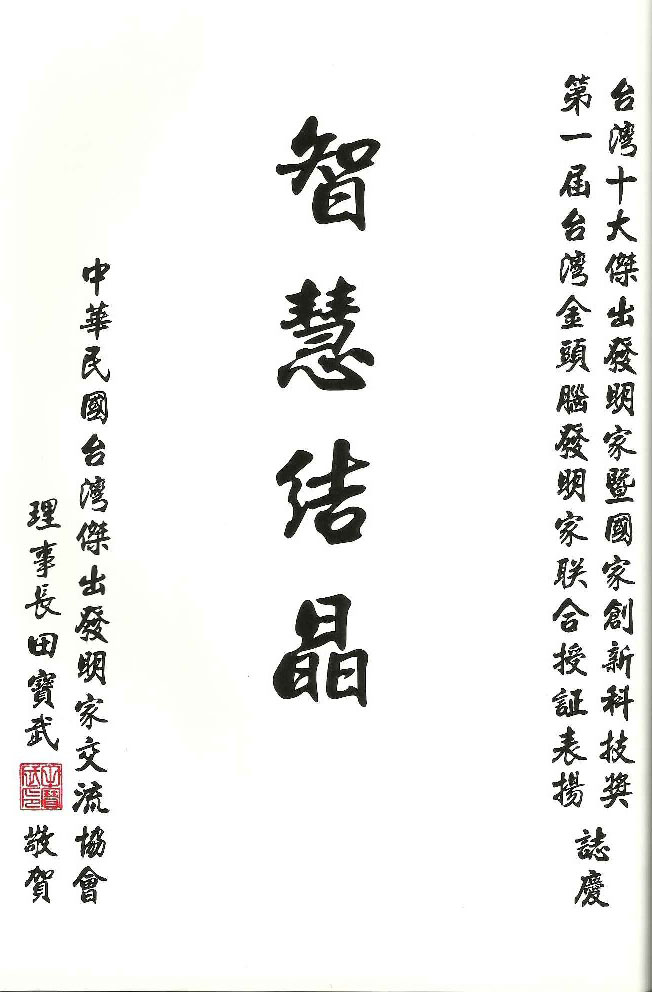 台灣十大傑出發明家暨國家創新科技獎
第一屆台灣金頭腦發明家联合授証表揚
誌慶
智慧結晶
中華民國台灣傑出發明家交流協會
理事長田寶武
敬賀